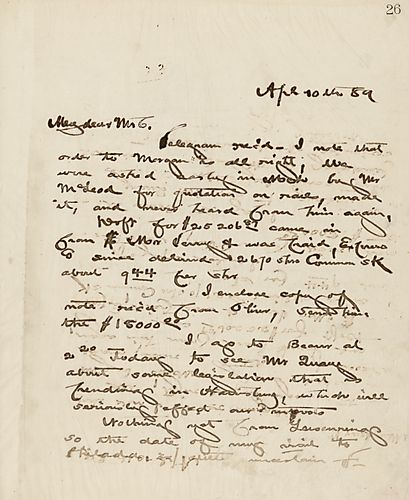 26
Apl 10th 89
My dear Mr C.
Telegram rec'd. I note that
order to Morgan is all right, We
were asked early in Mch by Mr
McLeod for quotation on rails, made
it, and never heard from him again,
Dfft for $25206 came in
from & was paid,
since delivd 2670 shs Common Sk
about 944 per shr
I enclose copy of
note rec'd from sending him
the $15000
I go to Beaver at
2 20 Today to see Mr Quay
about some legislation that is
pending in Harrisburg, which will
seriously effect our
Nothing yet from
so the date of my visit to
Philada, is quite uncertain